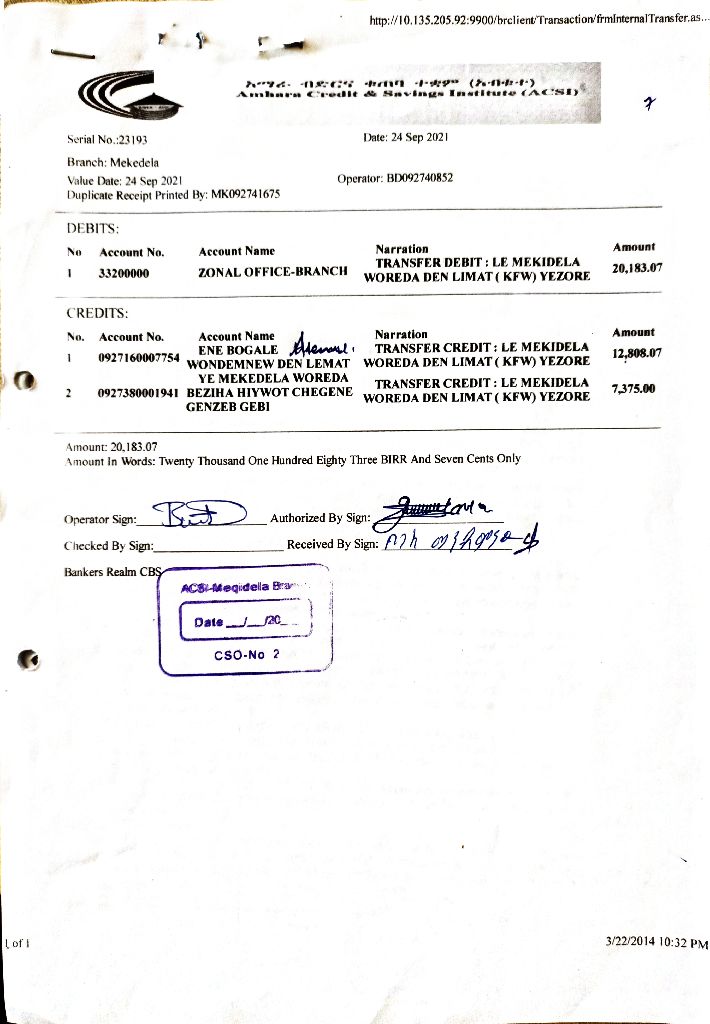 http://10.135.205.92:9900/brclient/Transaction/frmInternalTransfer.as...
አማራ ብድርና ቁጠባ ተቋም (አብቁተ)
Amhara Credit & Savings Institute (ACSI)
7
Serial No.:23193 Date: 24 Sep 2021
Branch: Mekedela
Value Date: 24 Sep 2021 Operator: BD092740852
Duplicate Receipt Printed By: MK092741675
DEBITS:
No Account No. Account Name Narration Amount
1 33200000 ZONAL OFFICE-BRANCH TRANSFER DEBIT : LE MEKIDELA WOREDA DEN LIMAT ( KFW) YEZORE 20,183.07
CREDITS:
No. Account No. Account Name Narration Amount
1 0927160007754 ENE BOGALE WONDEMNEW DEN LEMAT TRANSFER CREDIT : LE MEKIDELA WOREDA DEN LIMAT ( KFW) YEZORE 12,808.07
2 0927380001941 YE MEKEDELA WOREDA BEZIHA HIYWOT CHEGENE GENZEB GEBI TRANSFER CREDIT : LE MEKIDELA WOREDA DEN LIMAT ( KFW) YEZORE 7,375.00
Amount: 20,183.07
Amount In Words: Twenty Thousand One Hundred Eighty Three BIRR And Seven Cents Only
Operator Sign: Authorized By Sign:
Checked By Sign: Received By Sign:
Bankers Realm CBS
ACSI-Meqidela Bran
Date __/__/20__
CSO-No 2
1 of 1 3/22/2014 10:32 PM